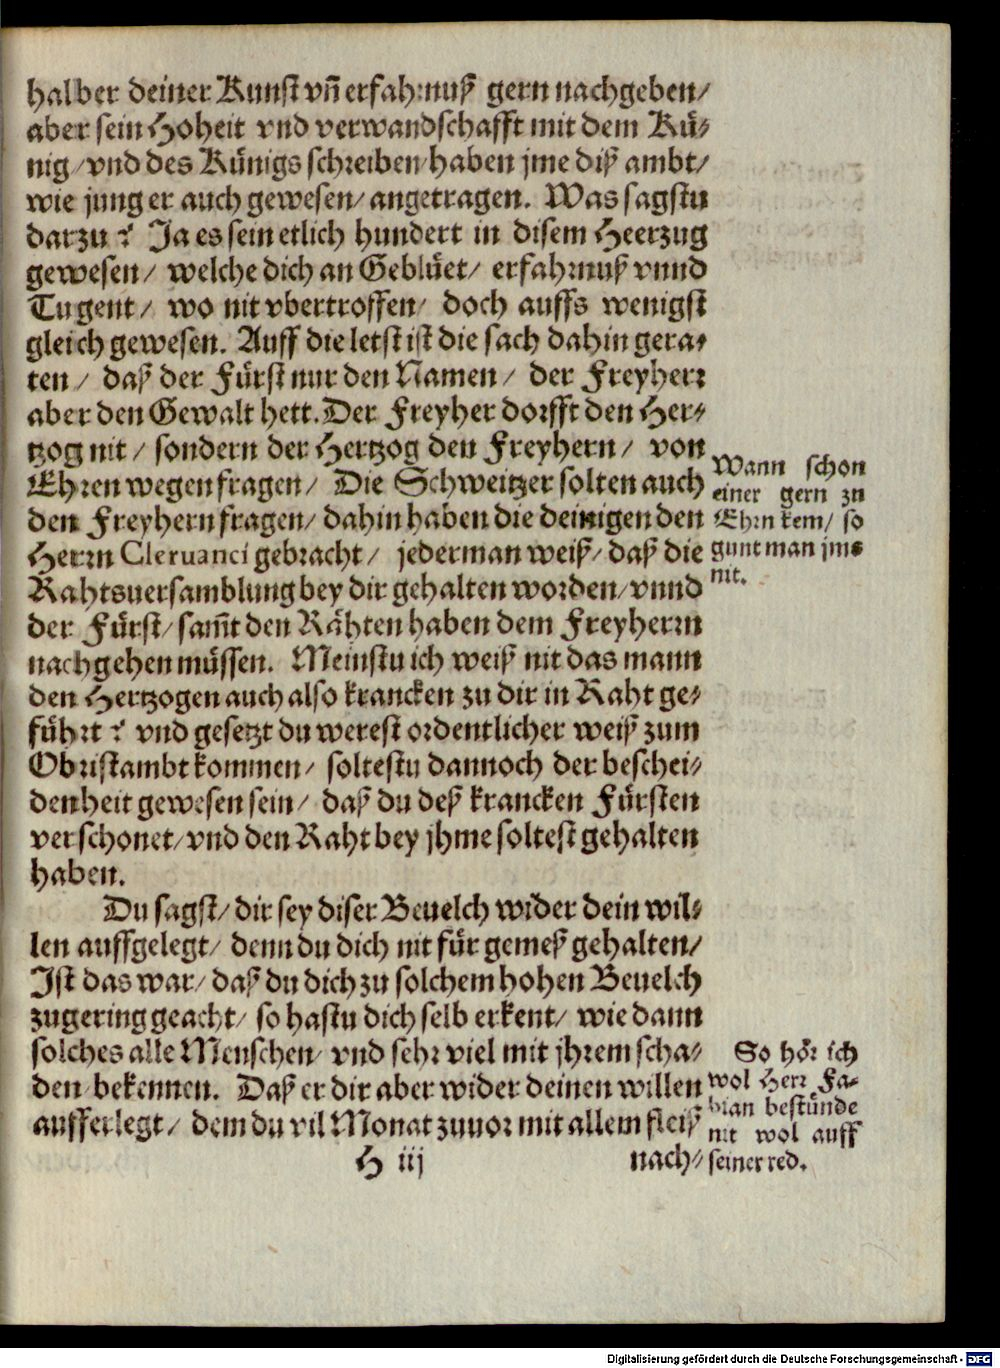 halber deiner Kunst vñ erfahrnuß gern nachgeben/
aber sein Hoheit vnd verwandschafft mit dem Kü-
nig/ vnd des Künigs schreiben/ haben jme diß ambt/
wie jung er auch gewesen/ angetragen. Was sagstu
darzu? Ja es sein etlich hundert in disem Heerzug
gewesen/ welche dich an Geblüet/ erfahrnuß vnnd
Tugent/ wo nit vbertroffen/ doch auffs wenigst
gleich gewesen. Auff die letst ist die sach dahin gera-
ten/ daß der Fürst nur den Namen/ der Freyherr
aber den Gewalt hett. Der Freyher dorfft den Her-
tzog nit/ sondern der Hertzog den Freyhern/ von
Ehren wegen fragen/ Die Schweitzer solten auch
den Freyhern fragen/ dahin haben die deinigen den
Herrn Cleruanci gebracht/ jederman weiß/ daß die
Rahtsuersamblung bey dir gehalten worden/ vnnd
der Fürst/ sam̃t den Rähten haben dem Freyherrn
nachgehen müssen. Meinstu ich weiß nit das mann
den Hertzogen auch also krancken zu dir in Raht ge-
führt? vnd gesetzt du werest ordentlicher weiß zum
Obristambt kommen/ soltestu dannoch der beschei-
denheit gewesen sein/ daß du deß krancken Fürsten
verschonet/ vnd den Raht bey jhme soltest gehalten
haben.
Du sagst/ dir sey diser Beuelch wider dein wil-
len auffgelegt/ denn du dich nit für gemeß gehalten/
Ist das war/ daß du dich zu solchem hohen Beuelch
zugering geacht/ so hastu dich selb erkent/ wie dann
solches alle Menschen/ vnd sehr viel mit jhrem scha-
den bekennen. Daß er dir aber wider deinen willen
aufferlegt/ dem du vil Monat zuuor mit allem fleiß
H iij
nach-
Wann schon
einer gern zu
Ehrn kem/ so
gunt man jms
nit.
So hör ich
wol Herr Fa-
bian bestünde
nit wol auff
seiner red.
Digitalisierung gefördert durch die Deutsche Forschungsgemeinschaft - DFG